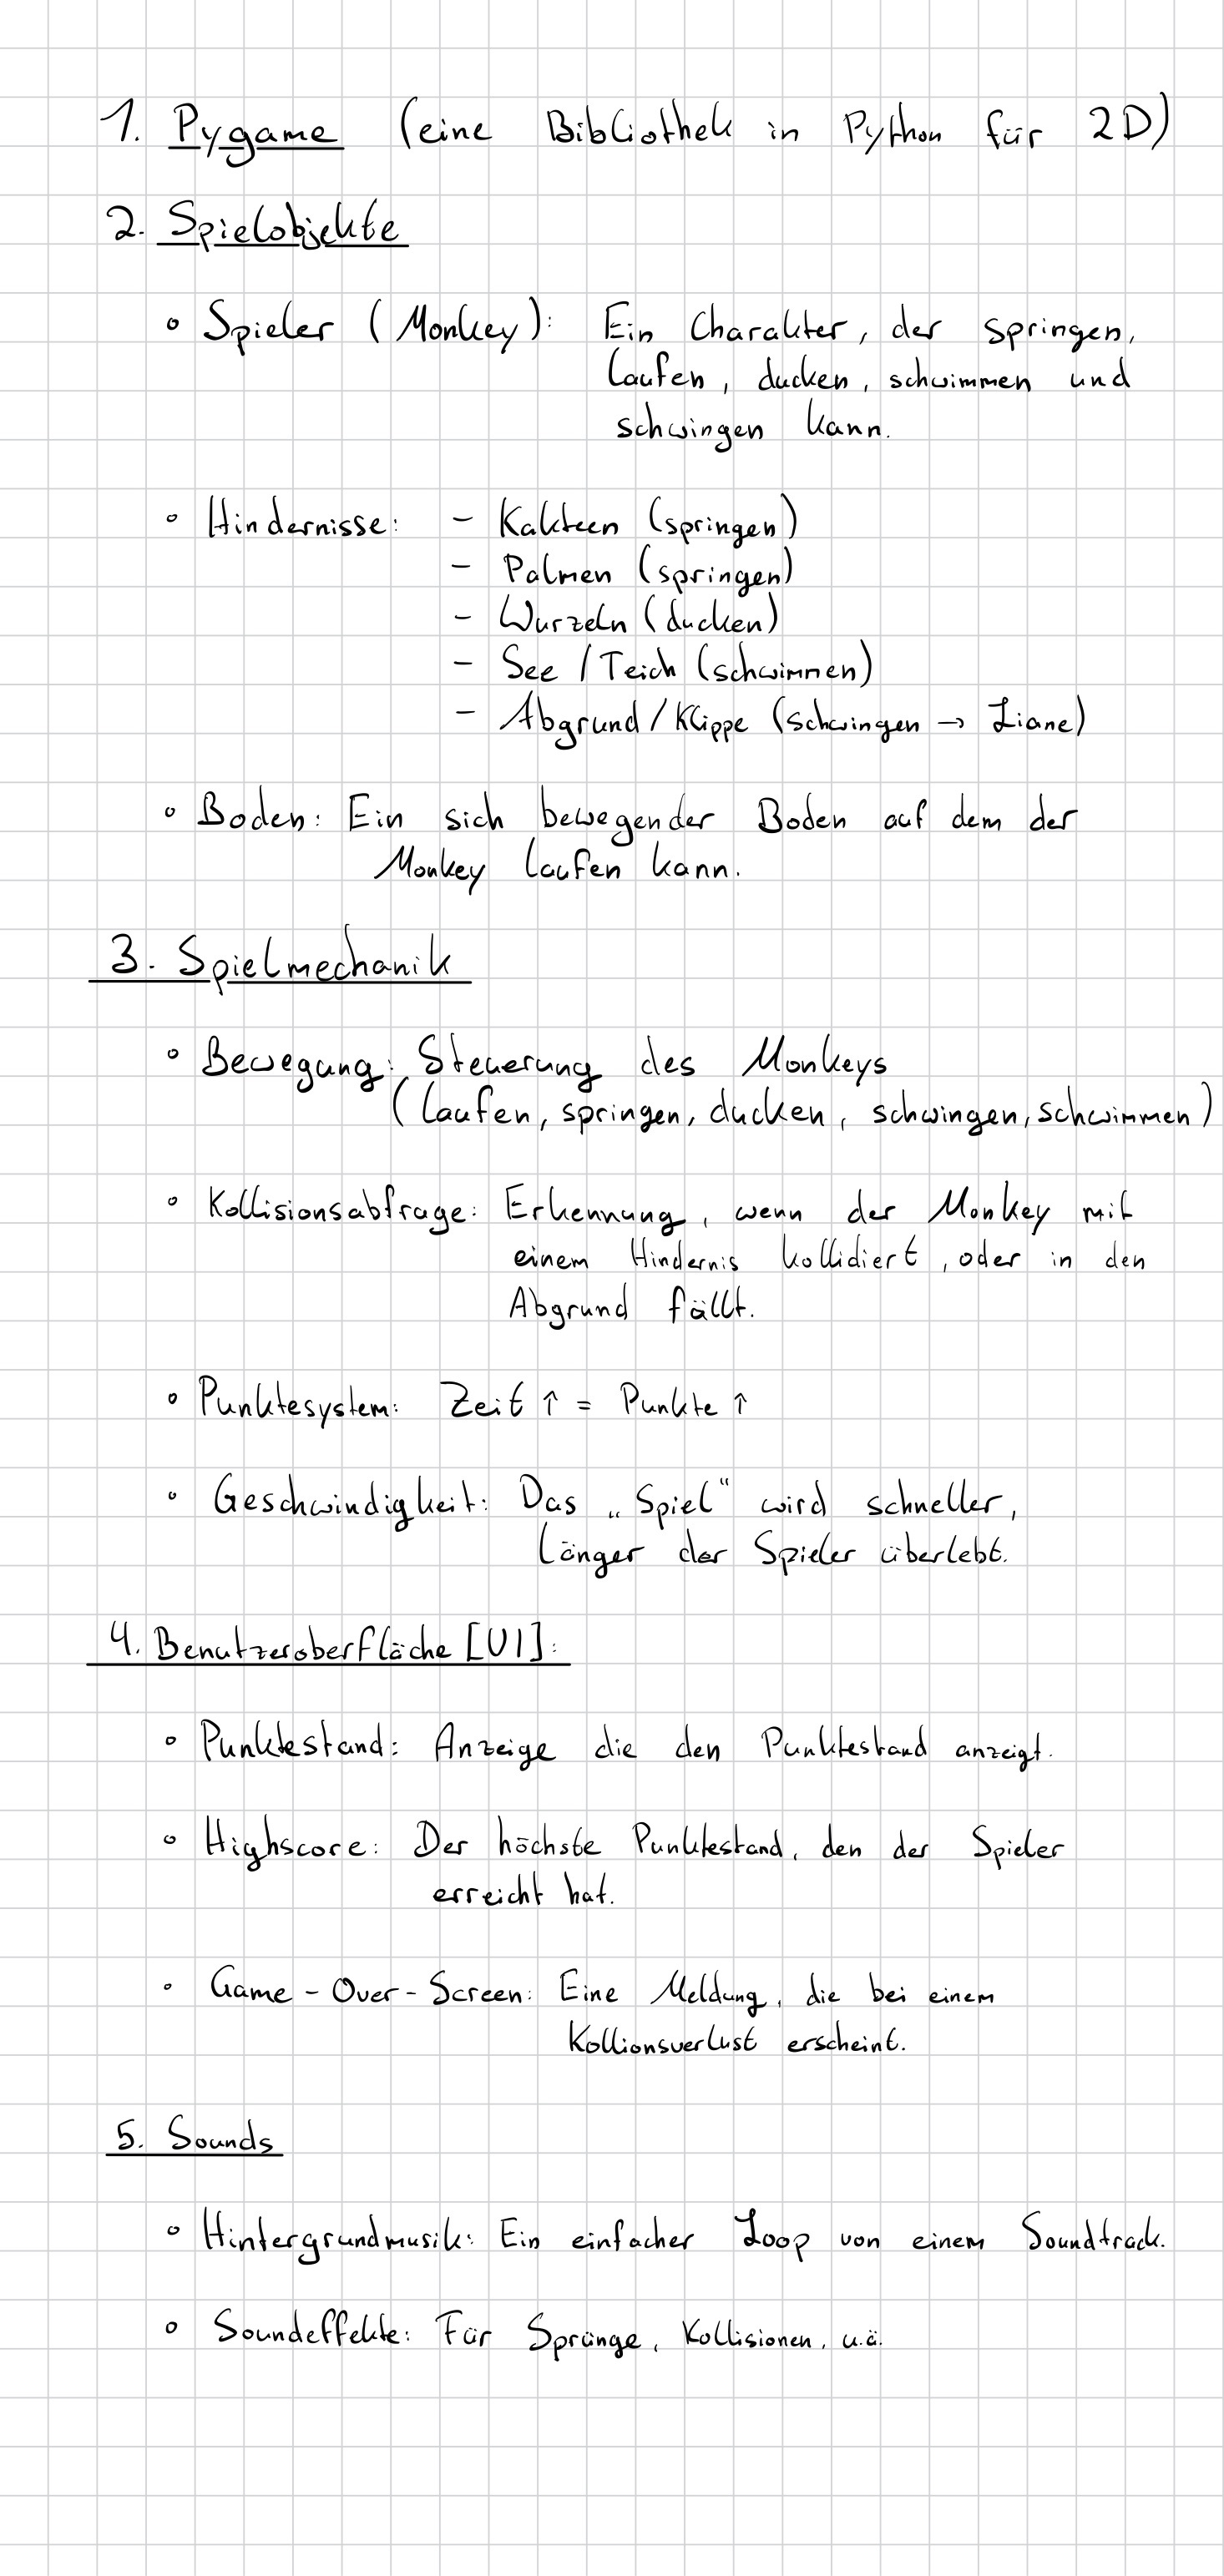 1. Pygame (eine Bibliothek in Python für 2D)
2. Spielobjekte
◦ Spieler (Monkey): Ein Charakter, der springen,
laufen, ducken, schwimmen und
schwingen kann.
◦ Hindernisse: - Kakteen (springen)
- Palmen (springen)
- Wurzeln (ducken)
- See / Teich (schwimmen)
- Abgrund / Klippe (schwingen → Liane)
◦ Boden: Ein sich bewegender Boden auf dem der
Monkey laufen kann.
3. Spielmechanik
◦ Bewegung: Steuerung des Monkeys
(laufen, springen, ducken, schwingen, schwimmen)
◦ Kollisionsabfrage: Erkennung, wenn der Monkey mit
einem Hindernis kollidiert, oder in den
Abgrund fällt.
◦ Punktesystem: Zeit ↑ = Punkte ↑
◦ Geschwindigkeit: Das „Spiel“ wird schneller,
länger der Spieler überlebt.
4. Benutzeroberfläche [UI]:
◦ Punktestand: Anzeige die den Punktestand anzeigt.
◦ Highscore: Der höchste Punktestand, den der Spieler
erreicht hat.
◦ Game-Over-Screen: Eine Meldung, die bei einem
Kollionsverlust erscheint.
5. Sounds
◦ Hintergrundmusik: Ein einfacher Loop von einem Soundtrack.
◦ Soundeffekte: Für Sprünge, Kollisionen, u.ä.